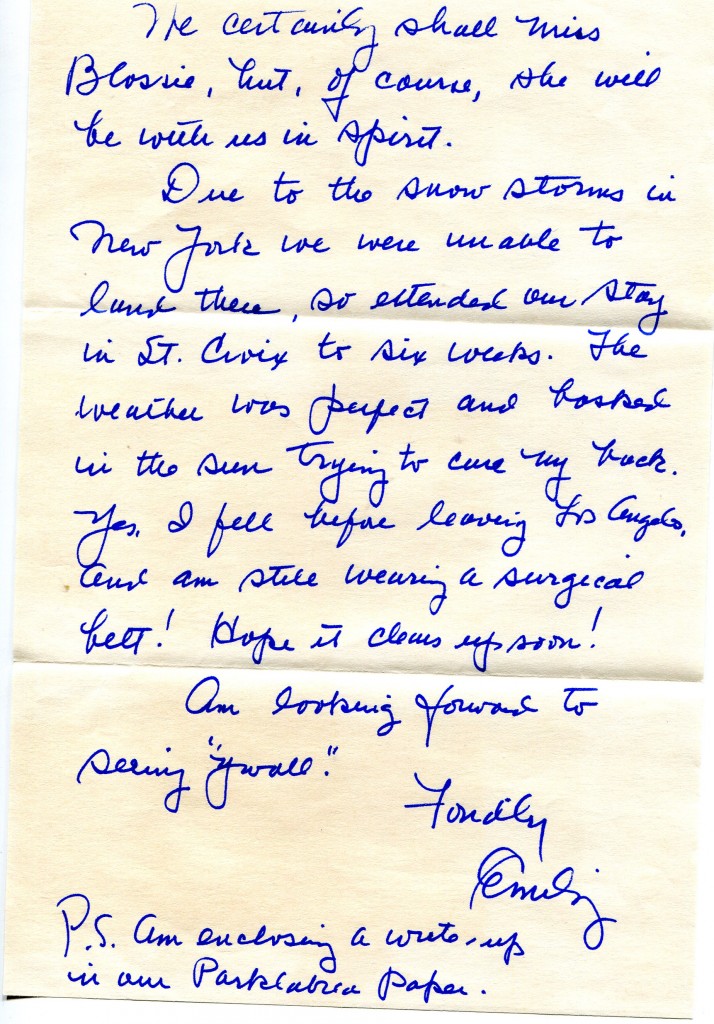 We certainly shall miss
Blossie, but, of course, she will
be with us in spirit.
Due to the snow storms in
New York we were unable to
land there, so extended our stay
in St. Croix to six weeks. The
weather was perfect and basked
in the sun trying to cure my back.
Yes, I fell before leaving Los Angeles,
and am still wearing a surgical
belt! Hope it clears up soon!
Am looking forward to
seeing "ywall."
Fondly
Emily
P.S. Am enclosing a write-up
in our Parklabrea paper.